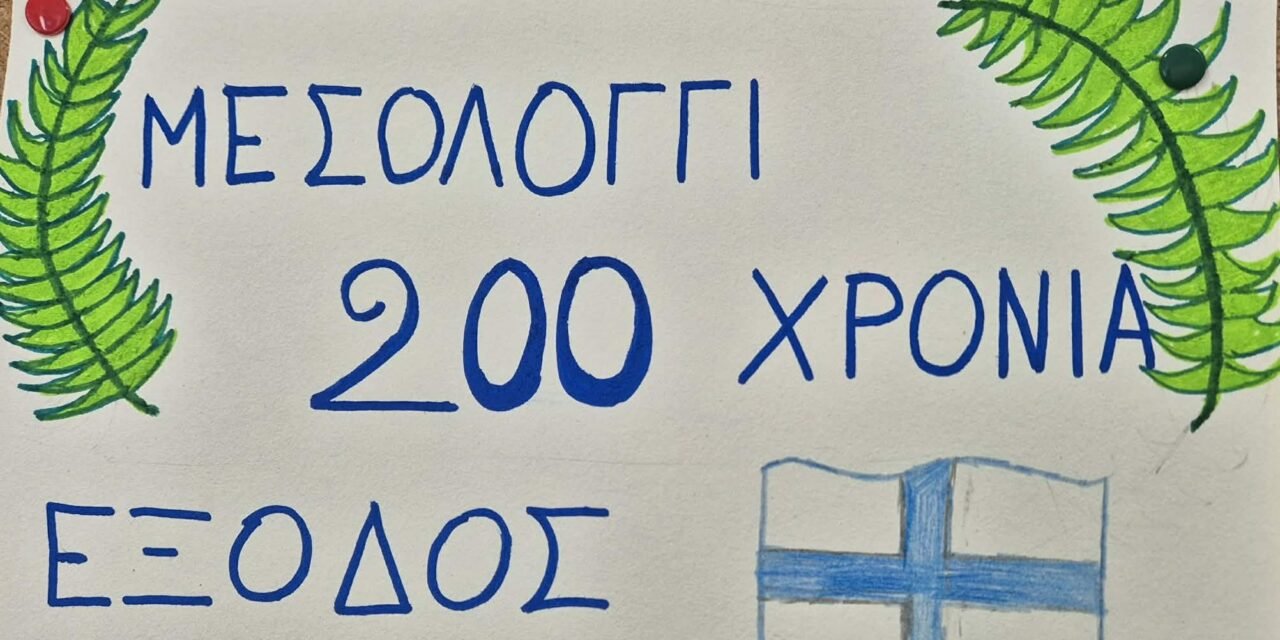 ΜΕΣΟΛΟΓΓΙ
200 ΧΡΟΝΙΑ
ΕΞΟΔΟΣ